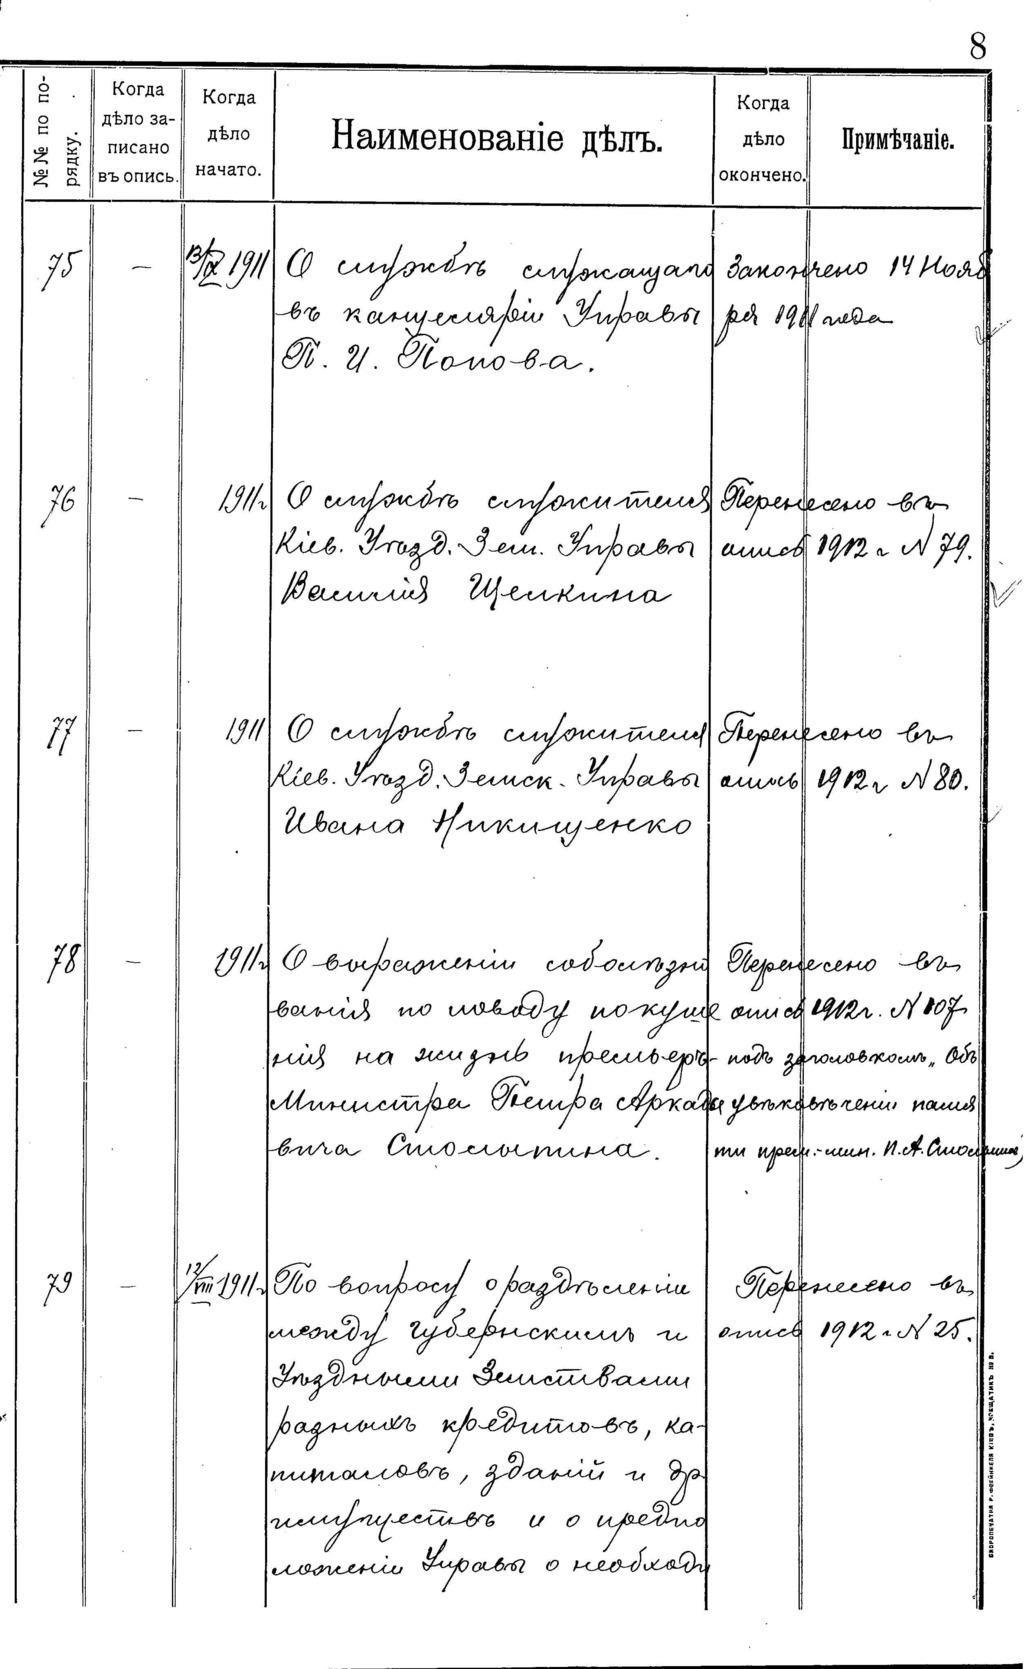 8
№№ по по-
рядку.
Когда
дѣло за-
писано
въ опись.
Когда
дѣло
начато.
Наименованіе дѣлъ.
Когда
дѣло
окончено.
Примѣчаніе.
75 — 13/IX 1911 О службѣ служащаго Закончено 14 Нояб
въ канцеляріи Управы ря 1911 года
П. И. Попова.
76 — 1911г О службѣ служителя Перенесено въ
Кіев. Уѣзд. Зем. Управы опись 1912 г N 79.
Василія Щелкина
77 — 1911 О службѣ служителя Перенесено въ
Кіев. Уѣзд. Земск. Управы опись 1912 г N 80.
Ивана Никищенко
78 — 1911г О выраженіи соболѣзно Перенесено въ
ванія по поводу покуше опись 1912г. N 107
нія на жизнь премьеръ- подъ заголовкомъ „Объ
Министра Петра Аркадіе увѣковѣченіи памя
вича Столыпина. ти прем.-мин. П.А. Столыпина
79 — 12/VIII 1911г По вопросу о раздѣленіи Перенесено въ
между губернскимъ и опись 1912 г N 25.
Уѣздными Земствами
разныхъ кредитовъ, ка-
питаловъ, зданій и др
имуществъ и о предпо
ложеніи Управы о необходи
СКОРОПЕЧАТНЯ Р. КІЕВЪ, КРЕЩАТИКЪ №